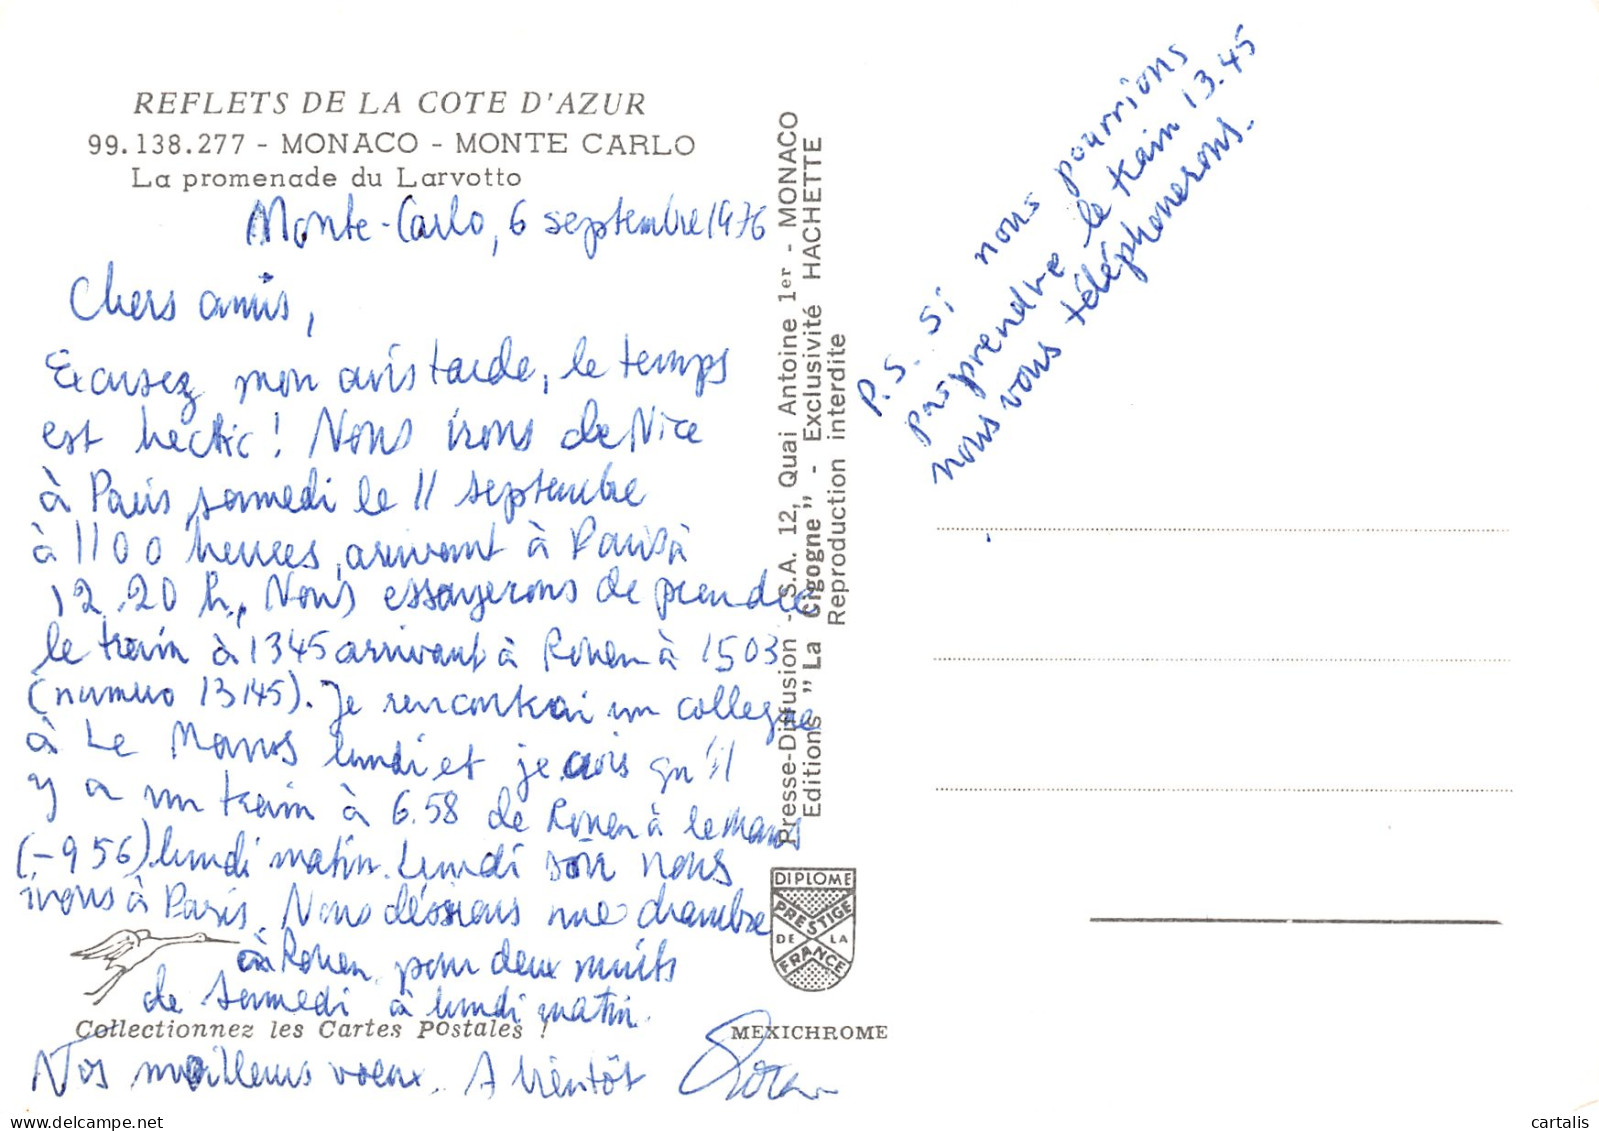 REFLETS DE LA COTE D'AZUR
99.138.277 - MONACO - MONTE CARLO
La promenade du Larvotto
Monte-Carlo, 6 septembre 1976
Chers amis,
Excusez mon avis tarde, le temps
est hectic! Nous irons de Nice
à Paris samedi le 11 septembre
à 1100 heures, arrivant à Paris à
12.20 h., Nous essayerons de prendre
le train à 1345 arrivant à Rouen à 1503
(numero 13145). Je rencontrai un collegue
à Le Mans lundi et je vois qu'il
y a un train à 6.58 de Rouen à le mans
(-956) lundi matin. Lundi soir nous
irons à Paris. Nous désirons une chambre
à Rouen pour deux nuits
de samedi à lundi matin.
Collectionnez les Cartes Postales !
Nos meilleurs voeux. A bientôt
Presse-Diffusion - S.A. 12, Quai Antoine 1er - MONACO
Editions "La Cigogne" - Exclusivité HACHETTE
Reproduction interdite
DIPLOME
PRESTIGE
DE LA
FRANCE
MEXICHROME
P.S. Si nous pourrions
pas prendre le train 13.45
nous vous téléphonerons.
cartalis delcampe.net